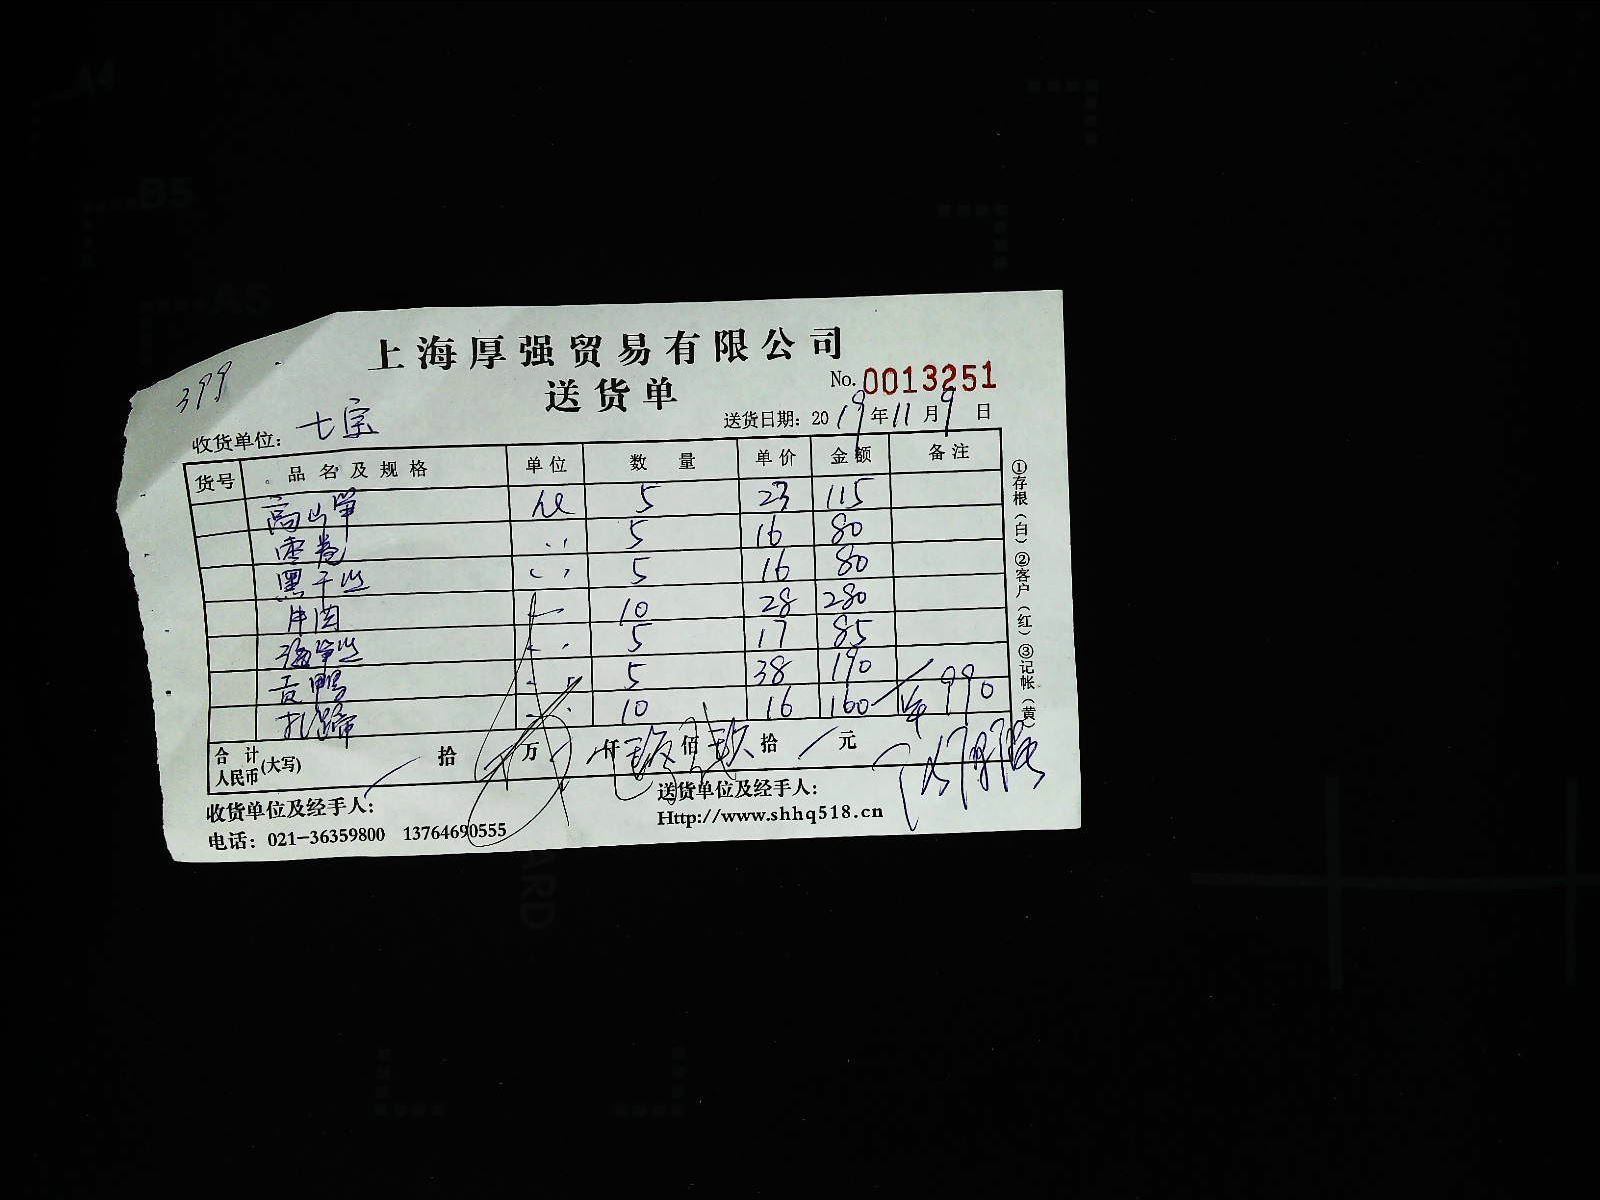 上海厚强贸易有限公司
送货单
No. 0013251
399
收货单位: 七宗
送货日期: 2019年11月9日
货号 品名及规格 单位 数量 单价 金额 备注
高山笋 5 23 115
枣卷 5 16 80
黑干丝 5 16 80
牛肉 10 28 280
海笋丝 5 17 85
贡鸭 5 38 190
扎蹄 10 16 160 990
合计人民币(大写) 拾 万 仟 玖 佰 玖 拾 元
收货单位及经手人:
送货单位及经手人:
电话: 021-36359800 13764690555
Http://www.shhq518.cn
①存根(白)②客户(红)③记帐(黄)
A4
B5
A5